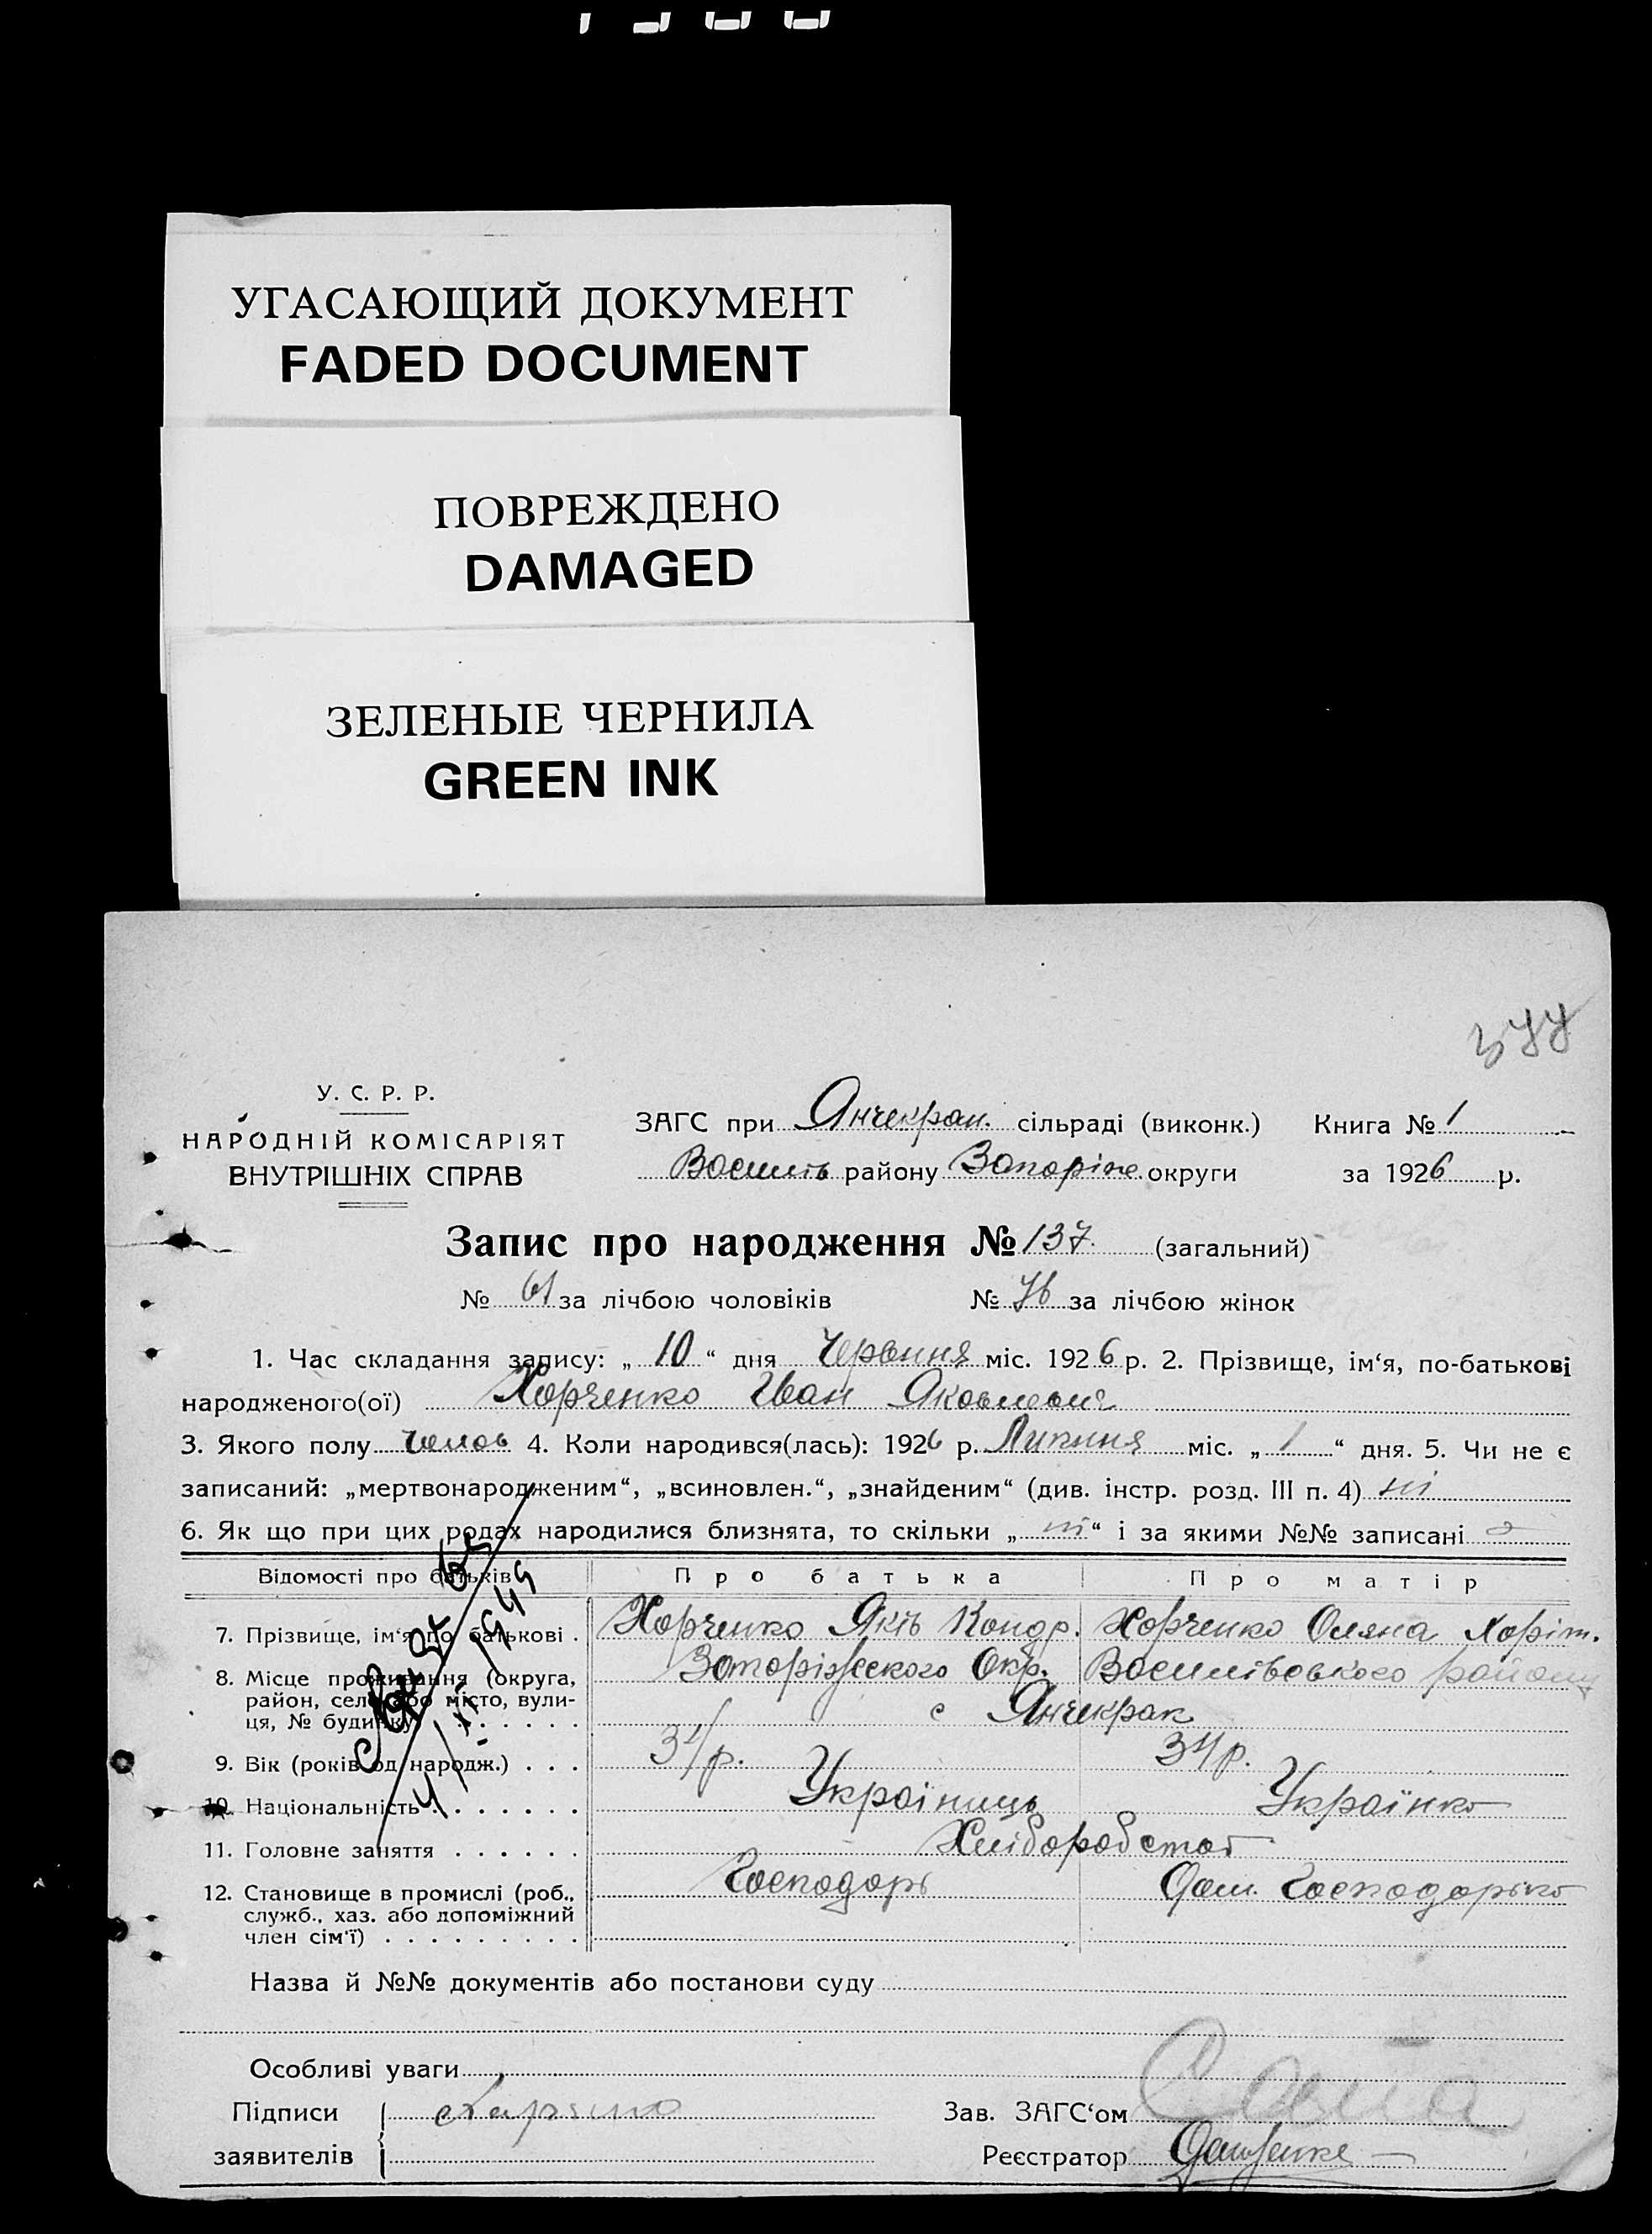 УГАСАЮЩИЙ ДОКУМЕНТ
FADED DOCUMENT
ПОВРЕЖДЕНО
DAMAGED
ЗЕЛЕНЫЕ ЧЕРНИЛА
GREEN INK
377
У. С. Р. Р.
НАРОДНІЙ КОМІСАРІЯТ
ВНУТРІШНІХ СПРАВ
ЗАГС при Янчекрак. сільраді (виконк.) Книга № 1
Василів району Запоріж. округи за 1926 р.
Запис про народження № 137. (загальний)
№ 61 за лічбою чоловіків № 76 за лічбою жінок
1. Час складання запису: „ 10 “ дня Червння міс. 1926 р. 2. Прізвище, ім‘я, по-батькові
народженого(ої) Харченко Іван Якович
3. Якого полу чолов 4. Коли народився(лась): 1926 р. Липння міс. „ 1 “ дня. 5. Чи не є
записаний: „мертвонародженим“, „всиновлен.“, „знайденим“ (див. інстр. розд. III п. 4) ні
6. Як що при цих родах народилися близнята, то скільки „ ні “ і за якими №№ записані
Відомості про батьків Про батька Про матір
7. Прізвище, ім‘я по батькові . Харченко Яків Кондр. Харченко Оляна Харіт.
8. Місце проживання (округа, Запоріжського Окр. Василівського району
район, село або місто, вули-
ця, № будинку) . . . . . . с Янчекрак
9. Вік (років од народж.) . . . 31/р. 31/р.
10. Національність . . . . . . . Українець Українка
11. Головне заняття . . . . . . Хліборобство
12. Становище в промислі (роб., Господарь Дом. Господарька
служб., хаз. або допоміжний
член сім‘ї) . . . . . . . . .
1949
Назва й №№ документів або постанови суду
Особливі уваги
Підписи Харченко Зав. ЗАГС‘ом
заявителів Реєстратор